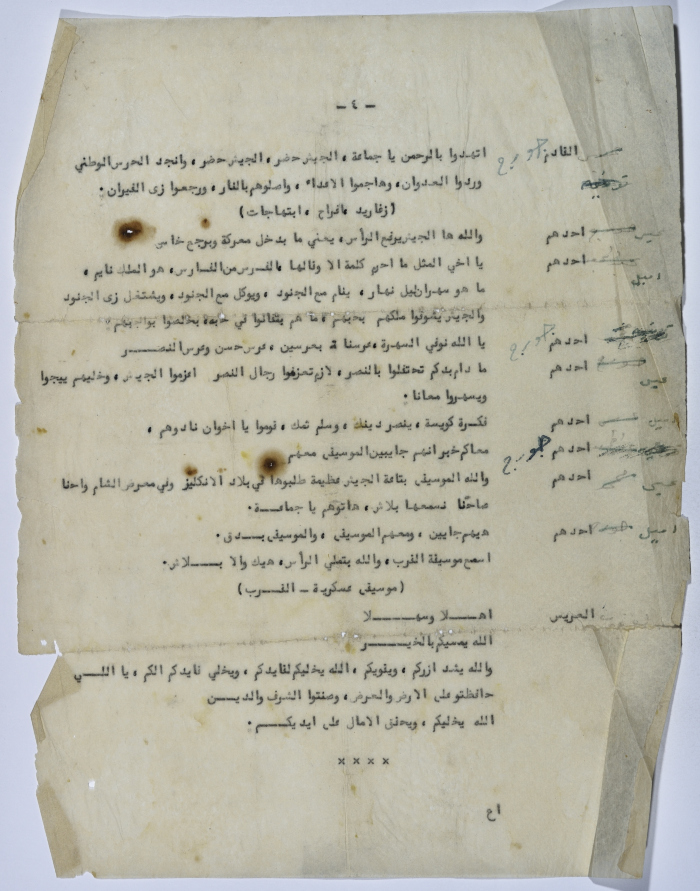 - ٤ -
القادم جورج اتهدوا بالرحمن يا جماعة ، الجيش حضر ، الجيش حضر ، وانجد الحرس الوطني
وردوا العدوان ، وهاجموا الاعداء ، واصلوهم بالنار ، ورجعوا زى الفيران .
( زغاريد ، افراح ، ابتهاجات )
احدهم والله ها الجيش يرفع الرأس ، يعني ما بدخل معركة ويرجع خاسر
احدهم يا اخي المثل ما احرم كلمة الا وقالها ، الفرس من الفارس ، هو الملك نايم ،
اميل ما هو سهران ليل نهار ، ينام مع الجنود ، ويوكل مع الجنود ، ويشتغل زى الجنود
والجيش يشوفوا ملكهم بحبهم ، ما هم بتفانوا في حبه ، بخلصوا بواجبهم
احدهم جورج يا الله نوفي السهرة ، عرسنا بعرسين ، عرس حسن وعرس النصر
احدهم ما دام بدكم تحتفلوا بالنصر ، لازم تعزموا رجال النصر اعزموا الجيش ، وخليهم ييجوا
ويسهروا معانا .
احدهم فكرة كويسة ، ينصر دينك ، وسلم تمك ، قوموا يا اخوان نادوهم ،
احدهم جورج معاكم خبر انهم جايبين الموسيقى معهم
احدهم والله الموسيقى بتاعة الجيش عظيمة طلبوها في بلاد الانكليز وفي معرض الشام واحنا
صاحنا نسمعها بلاش ، هاتوهم يا جماعة .
اميل احدهم هيهم جايين ، ومعهم الموسيقى ، والموسيقى بتدق .
اسمع موسيقة القرب ، والله بتعلي الرأس ، هيك والا بلاش .
( موسيقى عسكرية - القرب )
العريس اهلا وسهلا
الله يمسيكم بالخير
والله يشد ازركم ، ويقويكم ، الله يخليكم لقايدكم ، ويخلي قايدكم الكم ، يا اللي
حافظتو على الارض والعرض ، وصنتوا الشرف والدين
الله يخليكم ، ويحقق الامال على ايديكم .
× × × ×
اع